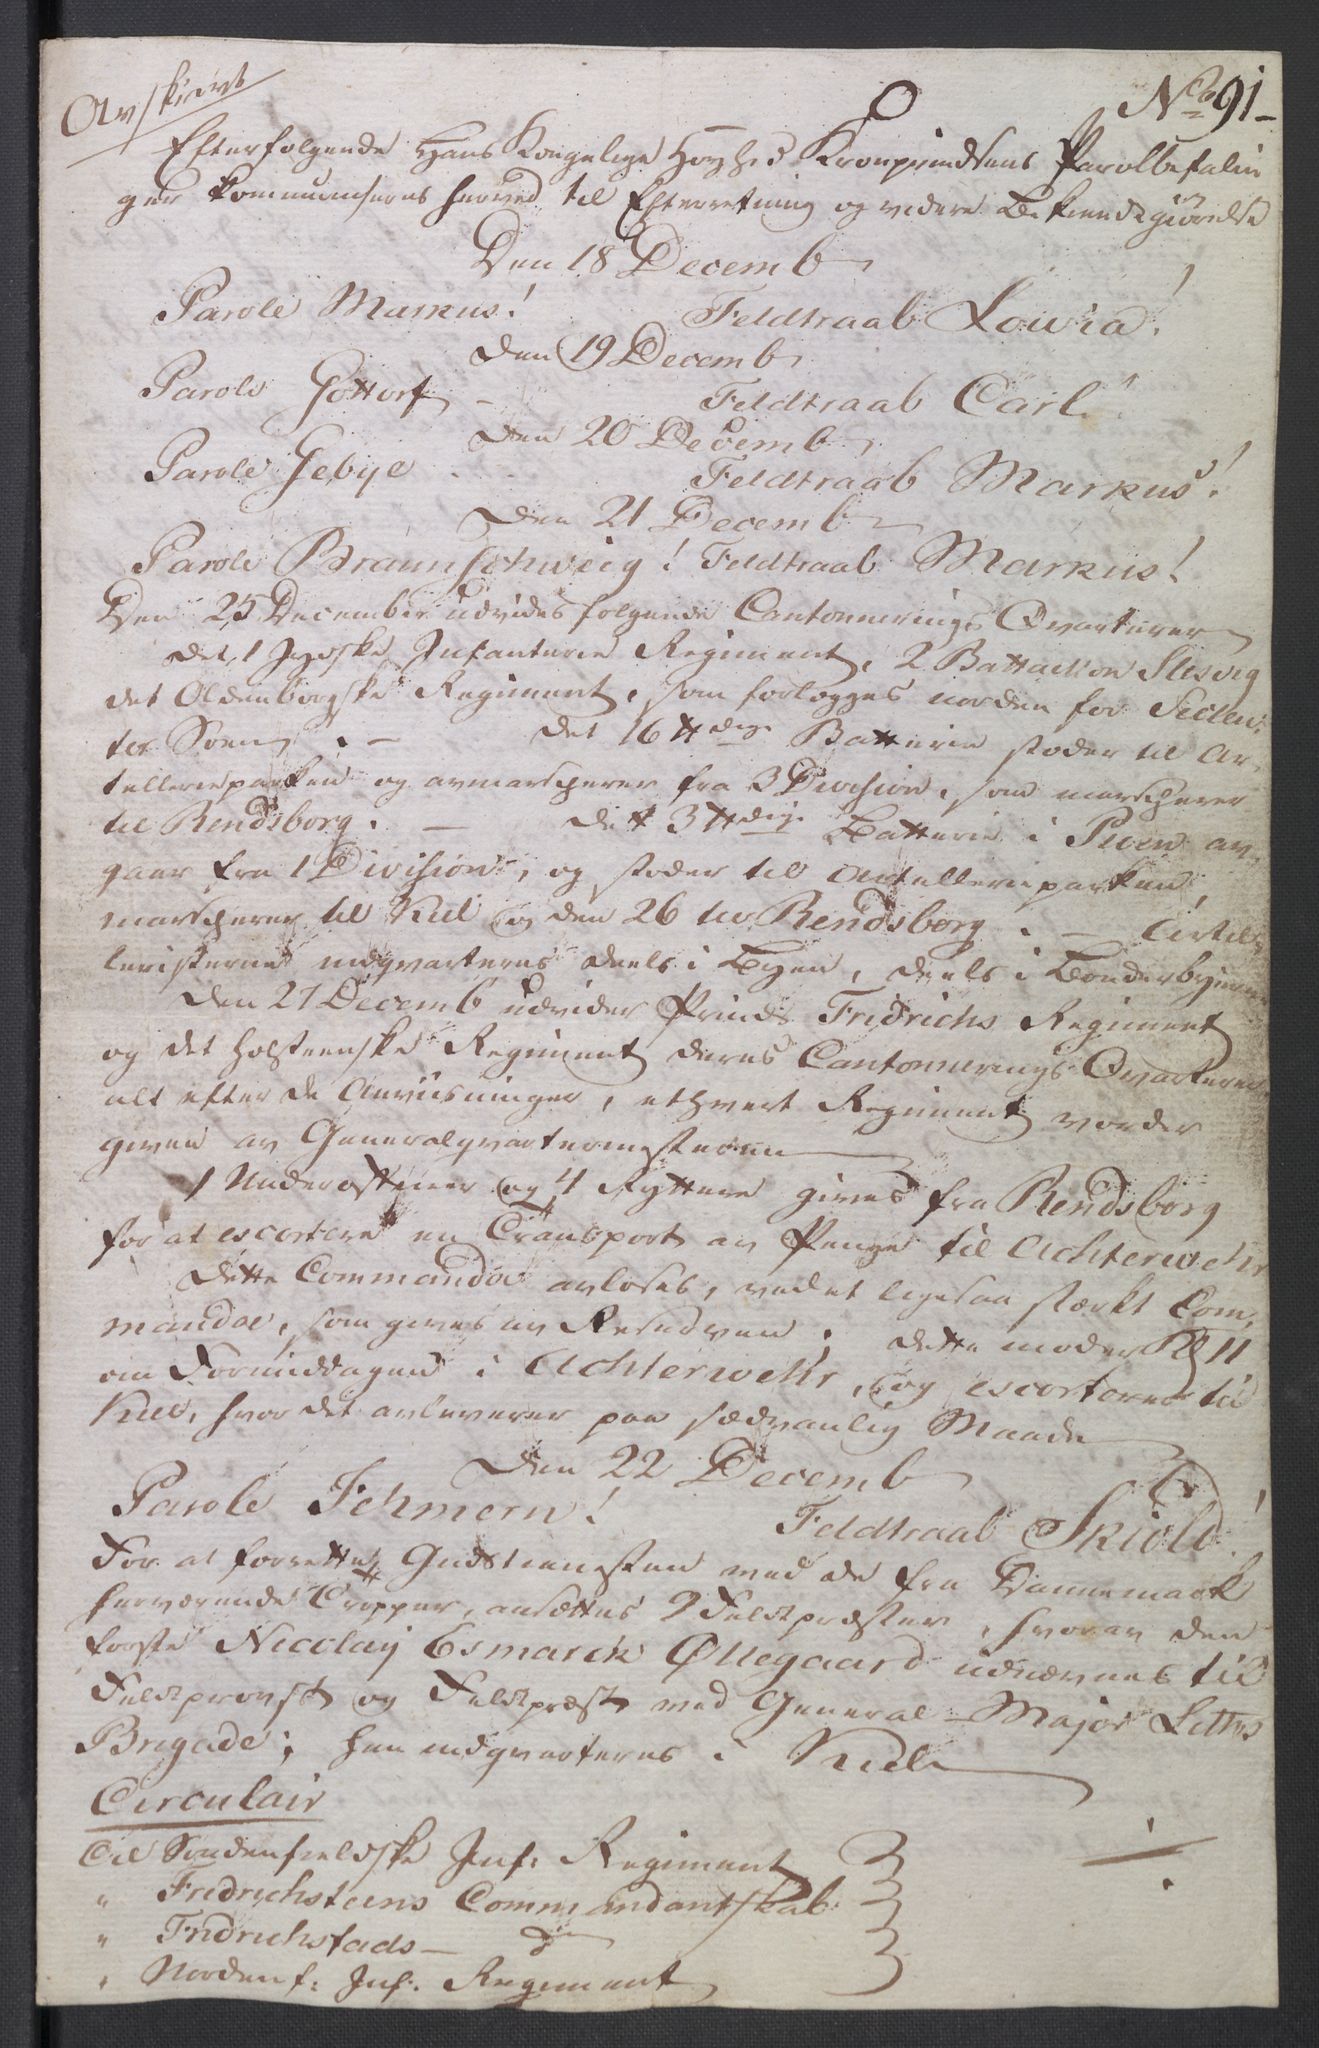 Avskrivt
No 91-
Efterfølgende Hans Kongelige Høyheds Kronprindsens Parolbefalin
ger kommuniseres herved til Efterretning og videre Bekiendtgiørelse
Den 18 Decemb
Parole Markus! Feldtraab Lovisa!
Den 19 Decemb
Parole Gottorf - Feldtraab Carl!
Den 20 Decemb
Parole Gebye Feldtraab Markus!
Den 21 Decemb
Parole Braunschweig! Feldtraab Markus!
Den 25 December udvides følgende Cantonnerings Qvarterer
det 1 Jydske Infanterie Regiment, 2 Battaillon Slesvig
det Oldenborgske Regiment, som forlægges norden for Selen
ter Søen. - det 16 ℔dige Batterie støder til Ar,
tellerieparken og avmarscherer fra 3 Division, som marscherer
til Rendsborg. - det 3 ℔dige Batterie i Preen av,
gaar fra 1 Division, og støder til Artellerieparken
marscherer til Kiel og den 26 til Rendsborg. - Artil,
leristerne indqvarteres deels i Byen, deels i Bønderbyerne
Den 27 Decemb udvider Prinds Fridrichs Regiment
og det holsteenske Regiment deres Cantonnerings Qvarterer
alt efter de Anviisninger, ethvert Regiment vorder
given av Generalqvartermesteren
1 Underofficeer og 4 Ryttere gives fra Rendsborg
for at escortere en Transport av Penge til Achterwehr
Dette Commando avløses, ved et ligesaa stærkt Com,
mandoe, som gives av Reserven; dette møder Kl 11
om Formiddagen i Achterwehr, og escorterer til
Kiel, hvor det avleverer paa sædvanlig Maade
Den 22 Decemb
Parole Fehmern! Feldtraab Skiold!
For at forrette Gudstienesten ved de fra Dannemark
herværende Tropper, ansættes 2 Feldtpræster, hvorav den
første Nicolay Esmarck Øllegaard udnævnes til
Feldtprovst og Feldtpræst ved General-Major Lettos
Brigade; han indqvarteres i Kiel
Circulair
Til Søndenfieldske Inf: Regiment
" Fredrichsteens Commandantskab
" Fridrichstads - d
" Nordenf: Inf: Regiment